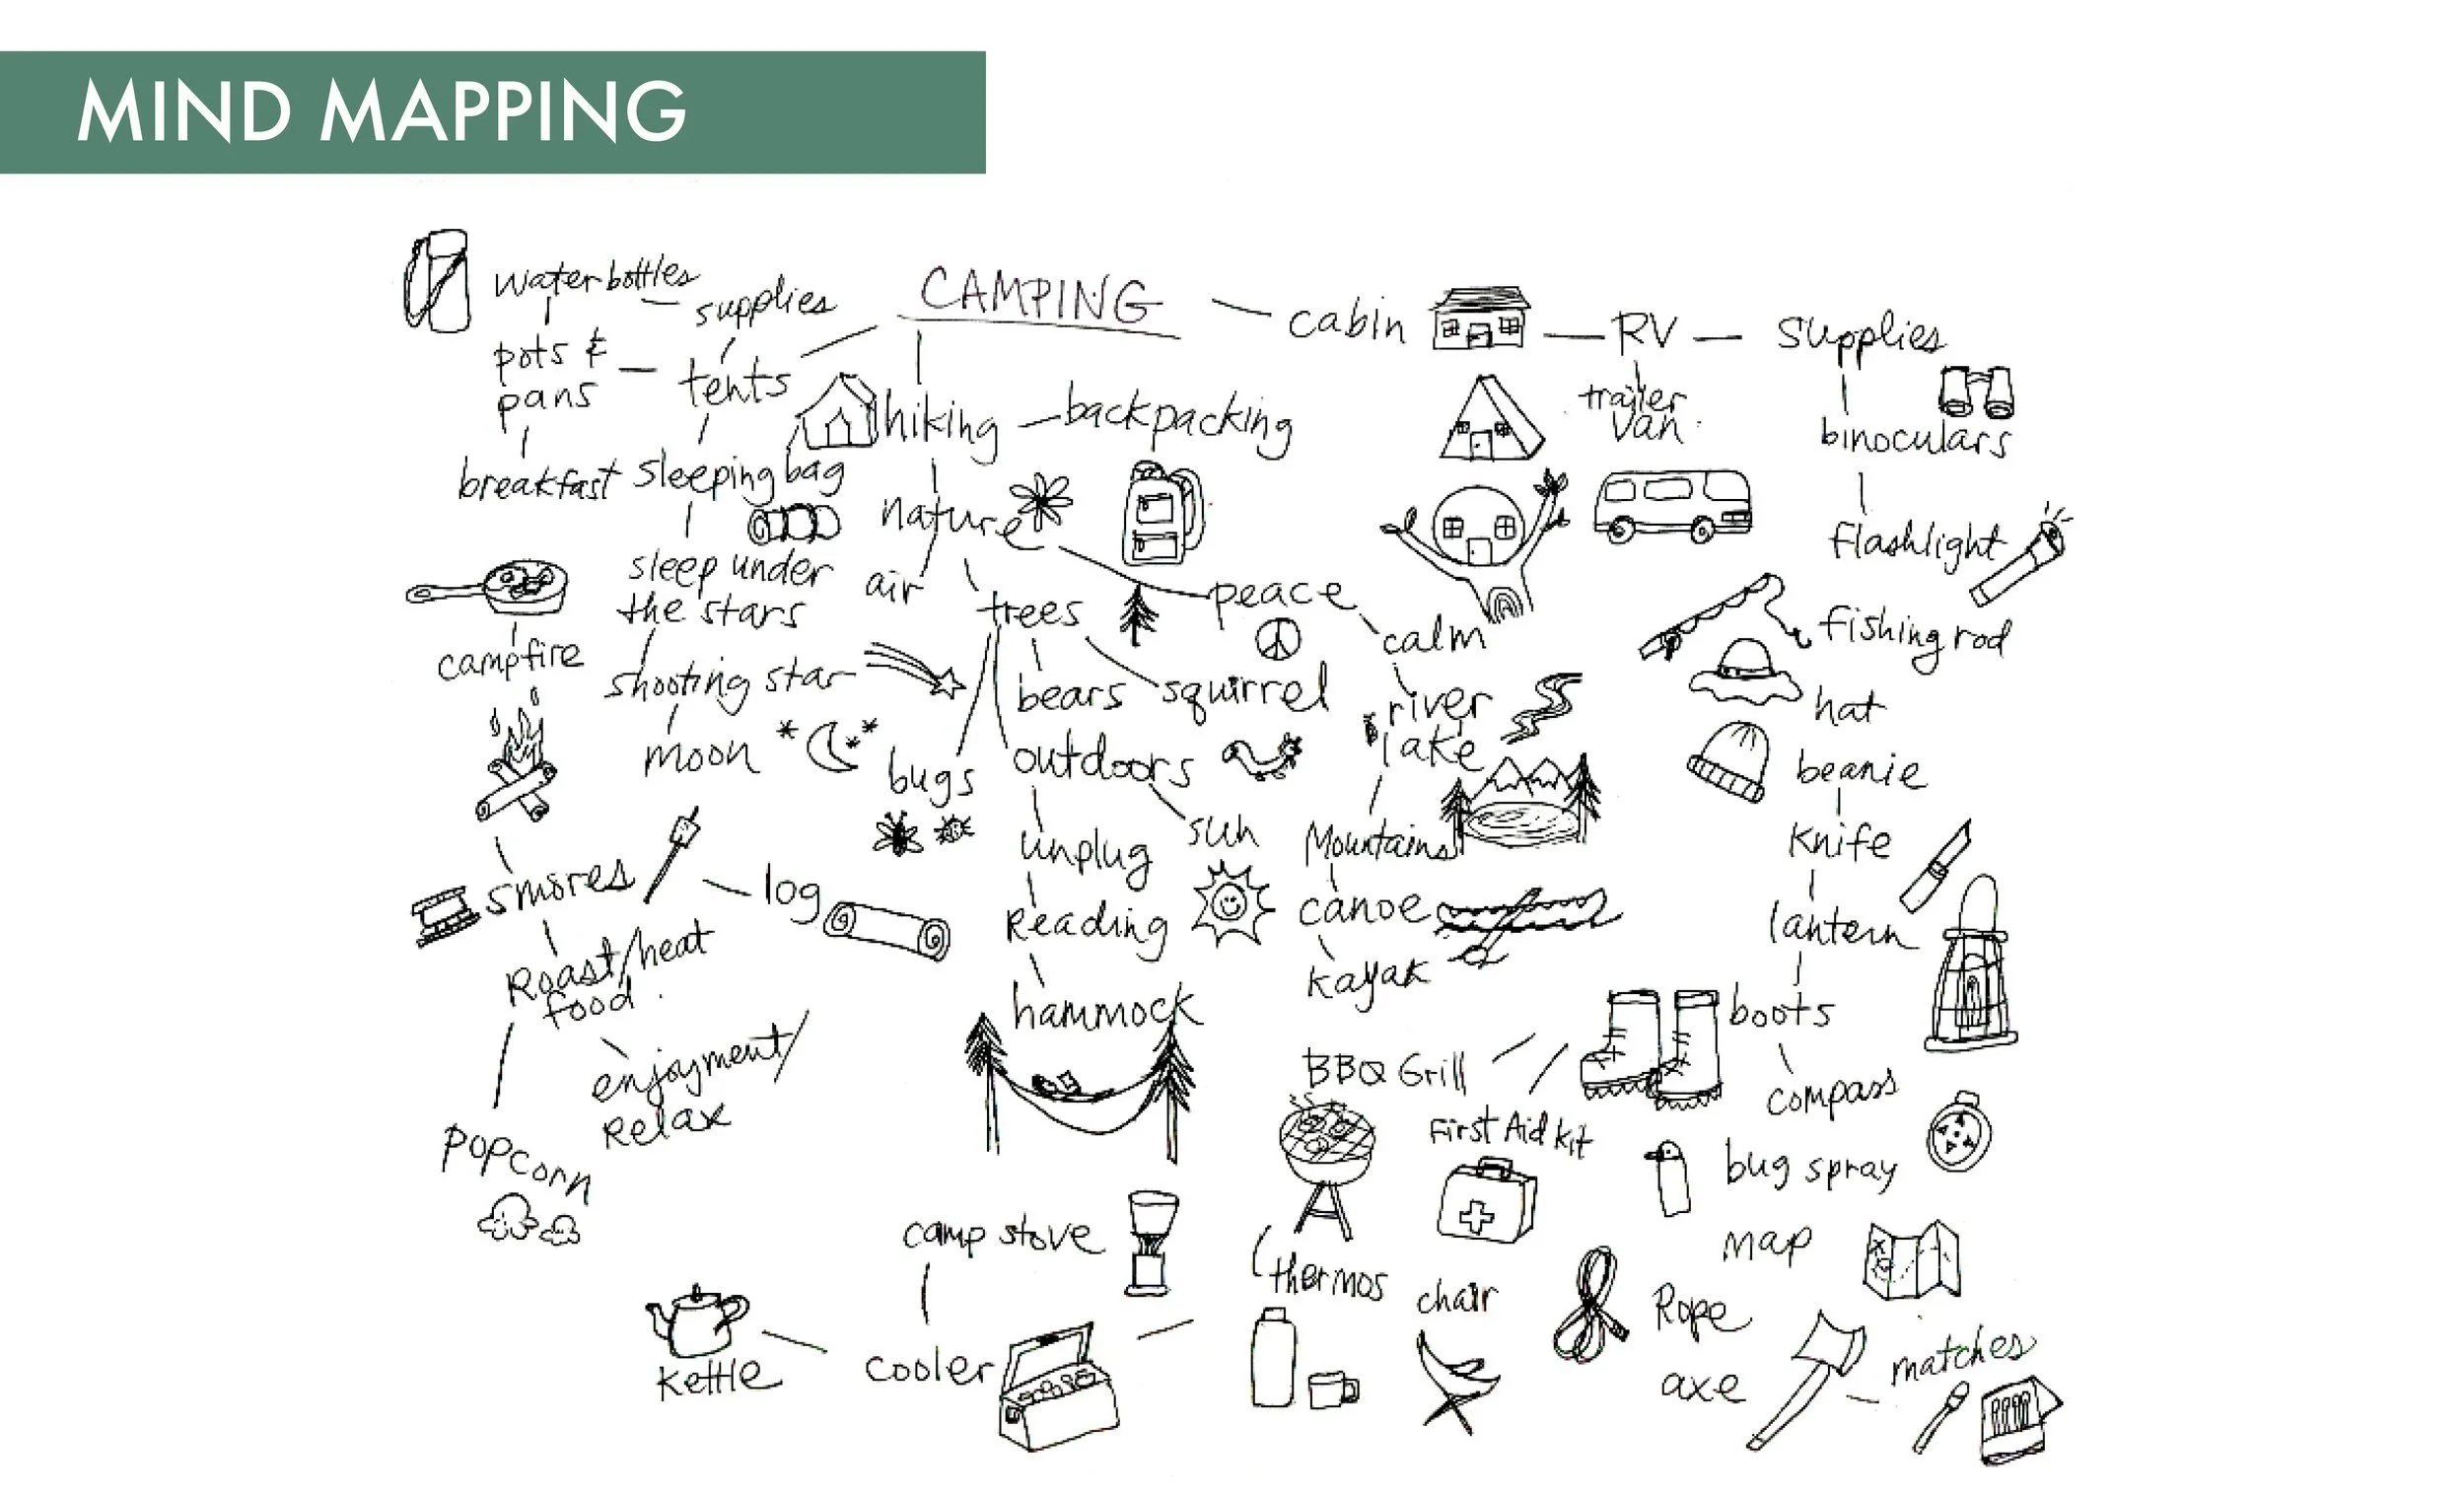 MIND MAPPING
CAMPING
water bottles
supplies
pots &
pans
tents
breakfast
sleeping bag
sleep under
the stars
shooting star
moon
campfire
smores
log
Roast/heat
food.
enjoyment/
Relax
Popcorn
hiking
backpacking
nature
air
trees
peace
calm
bears
squirrel
bugs
outdoors
sun
unplug
Reading
hammock
river
lake
Mountains
canoe
kayak
cabin
RV
trailer
van.
supplies
binoculars
flashlight
fishing rod
hat
beanie
knife
lantern
boots
compass
BBQ Grill
First Aid kit
bug spray
map
Rope
axe
matches
thermos
chair
camp stove
cooler
kettle